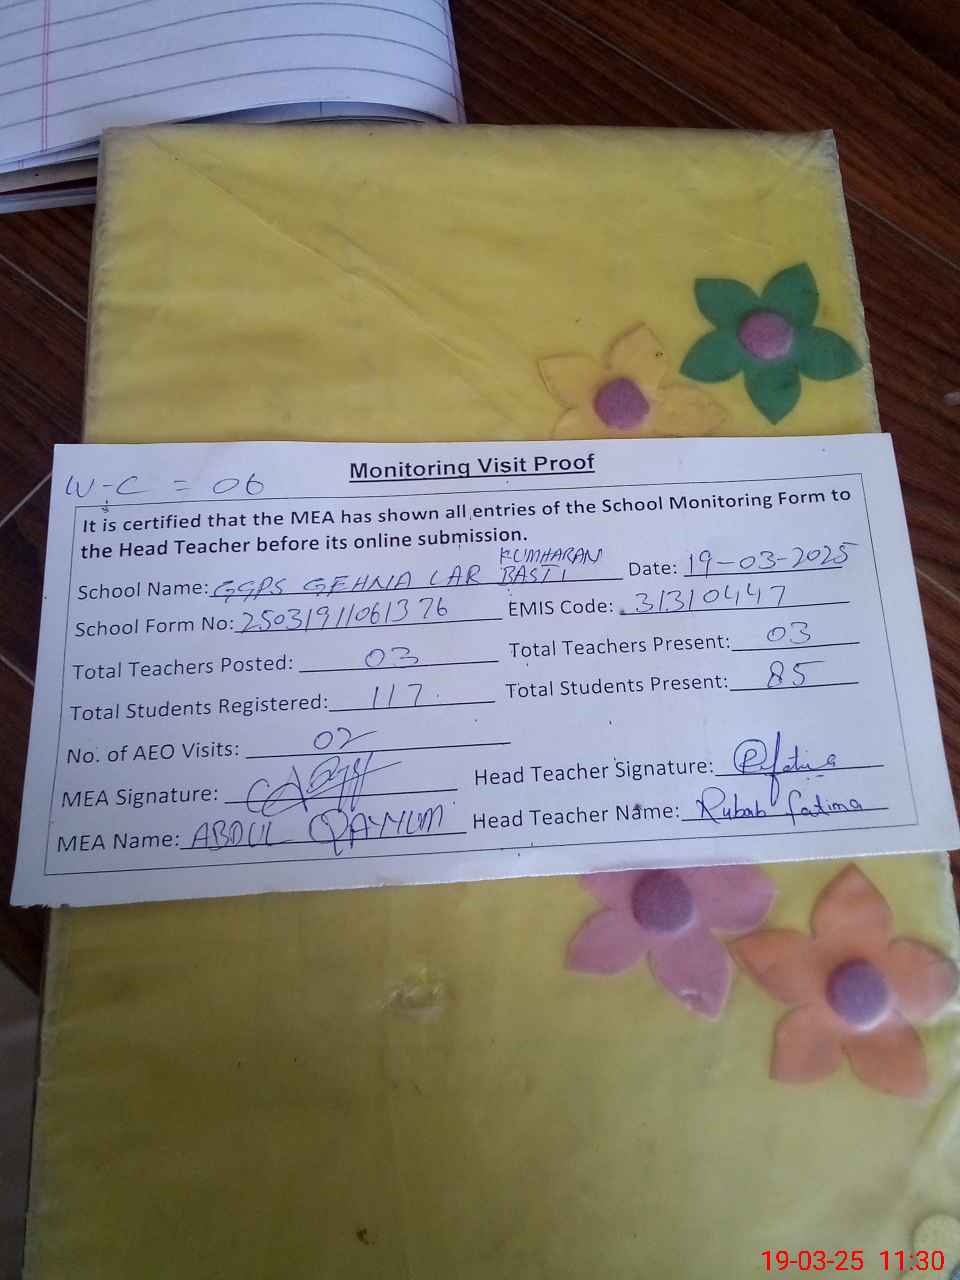 Monitoring Visit Proof
W-C = 06
It is certified that the MEA has shown all entries of the School Monitoring Form to
the Head Teacher before its online submission.
School Name: GGPS GEHNA LAR KUMHARAN BASTI Date: 19-03-2025
School Form No: 25031911061376 EMIS Code: 31310447
Total Teachers Posted: 03 Total Teachers Present: 03
Total Students Registered: 117 Total Students Present: 85
No. of AEO Visits: 02
MEA Signature: Head Teacher Signature:
MEA Name: ABDUL QAYYUM Head Teacher Name: Rubab fatima
19-03-25 11:30